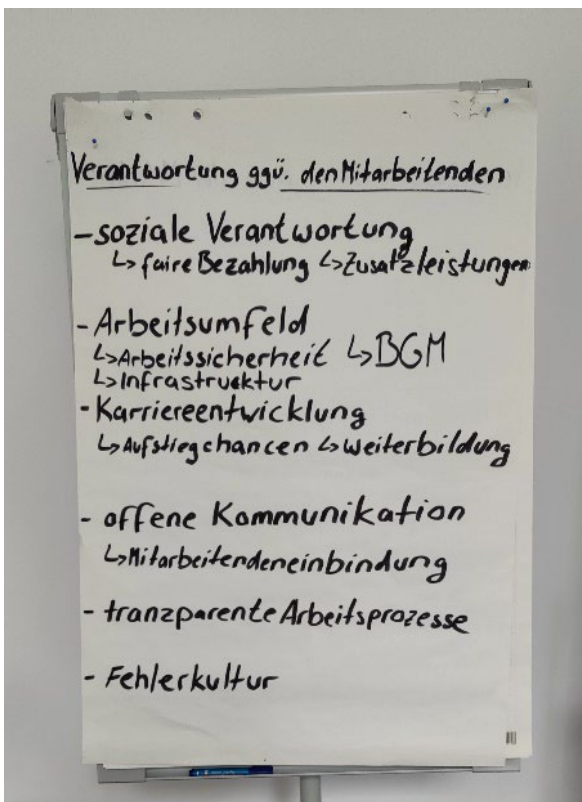 Verantwortung ggü. den Mitarbeitenden
- soziale Verantwortung
↳ faire Bezahlung ↳ Zusatzleistungen
- Arbeitsumfeld
↳ Arbeitssicherheit ↳ BGM
↳ Infrastruktur
- Karriereentwicklung
↳ Aufstiegchancen ↳ Weiterbildung
- offene Kommunikation
↳ Mitarbeitendeneinbindung
- tranzparente Arbeitsprozesse
- Fehlerkultur